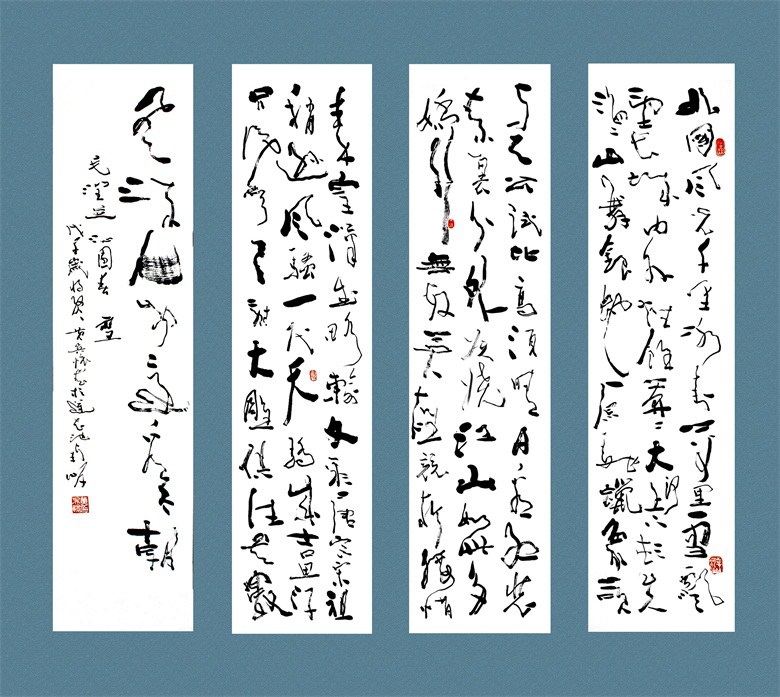 北國風光千里冰封萬里雪飄
望長城內外惟餘莽莽大河上下頓失
滔滔山舞銀蛇原馳蠟象欲
與天公試比高須晴日看紅裝
素裹分外妖嬈江山如此多
嬌引無數英雄競折腰惜
秦皇漢武略輸文采唐宗宋祖
稍遜風騷一代天驕成吉思汗
只識彎弓射大雕俱往矣數
風流人物還看今朝
毛澤東沁園春雪
戊子歲